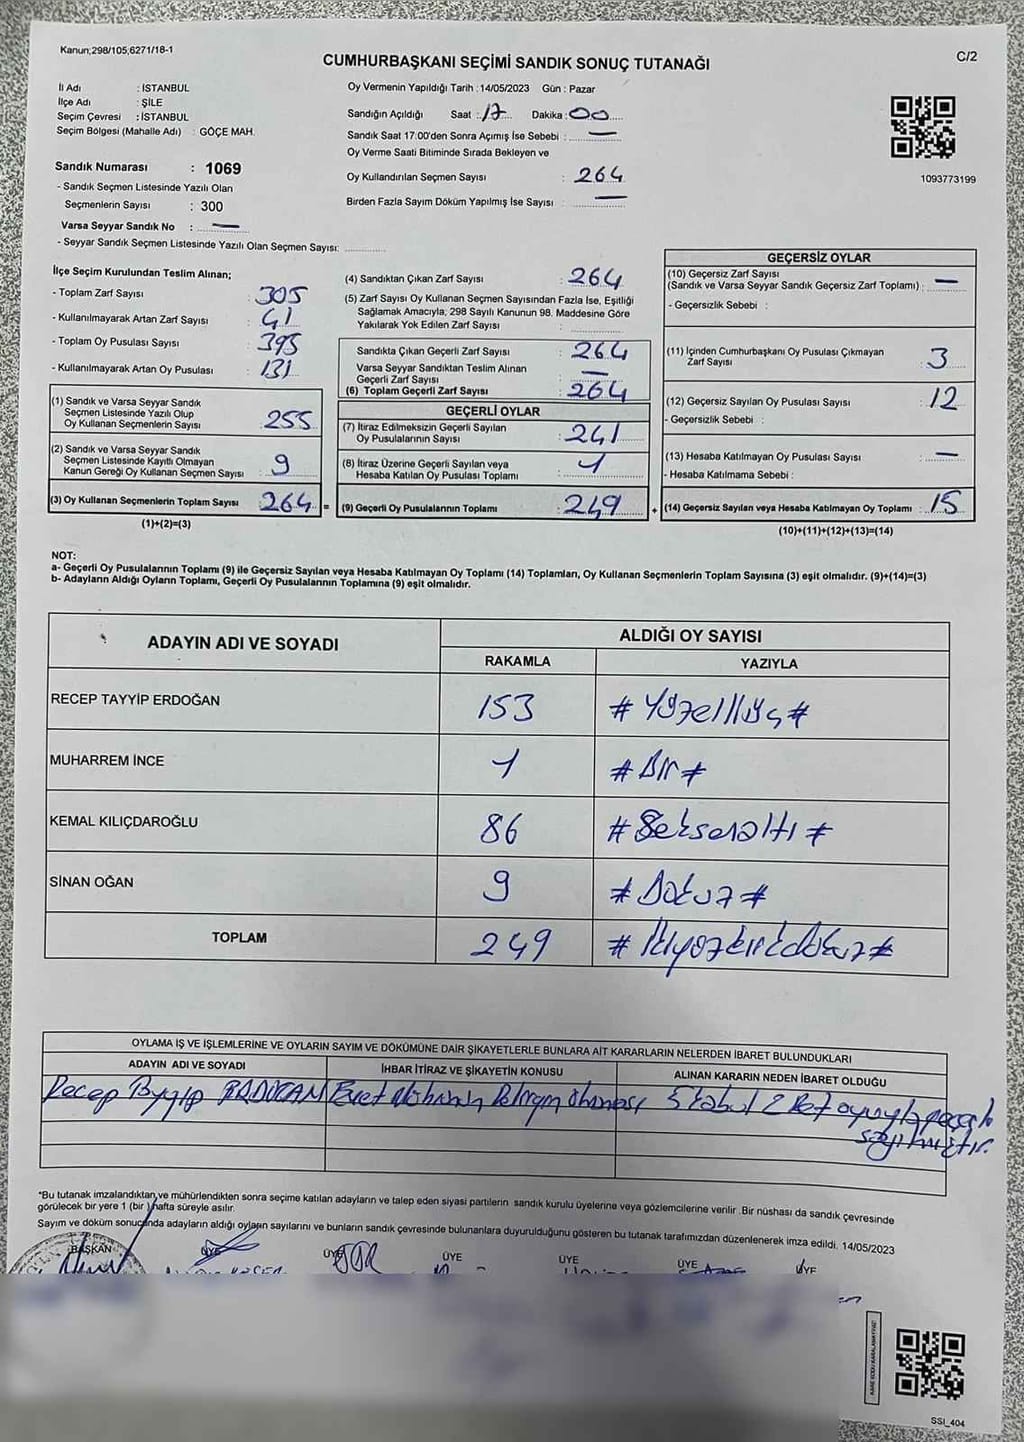 Kanun;298/105;6271/18-1
CUMHURBAŞKANI SEÇİMİ SANDIK SONUÇ TUTANAĞI
C/2
İl Adı : İSTANBUL
İlçe Adı : ŞİLE
Seçim Çevresi : İSTANBUL
Seçim Bölgesi (Mahalle Adı) : GÖÇE MAH.
Sandık Numarası : 1069
- Sandık Seçmen Listesinde Yazılı Olan
Seçmenlerin Sayısı : 300
Varsa Seyyar Sandık No : —
- Seyyar Sandık Seçmen Listesinde Yazılı Olan Seçmen Sayısı:
Oy Vermenin Yapıldığı Tarih : 14/05/2023 Gün : Pazar
Sandığın Açıldığı Saat : 17 Dakika : 00
Sandık Saat 17:00'den Sonra Açımış İse Sebebi : —
Oy Verme Saati Bitiminde Sırada Bekleyen ve
Oy Kullandırılan Seçmen Sayısı : 264
Birden Fazla Sayım Döküm Yapılmış İse Sayısı : —
1093773199
İlçe Seçim Kurulundan Teslim Alınan;
- Toplam Zarf Sayısı : 305
- Kullanılmayarak Artan Zarf Sayısı : 41
- Toplam Oy Pusulası Sayısı : 395
- Kullanılmayarak Artan Oy Pusulası : 131
(1) Sandık ve Varsa Seyyar Sandık
Seçmen Listesinde Yazılı Olup
Oy Kullanan Seçmenlerin Sayısı : 255
(2) Sandık ve Varsa Seyyar Sandık
Seçmen Listesinde Kayıtlı Olmayan
Kanun Gereği Oy Kullanan Seçmen Sayısı : 9
(3) Oy Kullanan Seçmenlerin Toplam Sayısı : 264 =
(1)+(2)=(3)
(4) Sandıktan Çıkan Zarf Sayısı : 264
(5) Zarf Sayısı Oy Kullanan Seçmen Sayısından Fazla İse, Eşitliği
Sağlamak Amacıyla, 298 Sayılı Kanunun 98. Maddesine Göre
Yakılarak Yok Edilen Zarf Sayısı :
Sandıkta Çıkan Geçerli Zarf Sayısı : 264
Varsa Seyyar Sandıktan Teslim Alınan
Geçerli Zarf Sayısı : —
(6) Toplam Geçerli Zarf Sayısı : 264
GEÇERLİ OYLAR
(7) İtiraz Edilmeksizin Geçerli Sayılan
Oy Pusulalarının Sayısı : 241
(8) İtiraz Üzerine Geçerli Sayılan veya
Hesaba Katılan Oy Pusulası Toplamı : 1
(9) Geçerli Oy Pusulalarının Toplamı : 249 +
GEÇERSİZ OYLAR
(10) Geçersiz Zarf Sayısı
(Sandık ve Varsa Seyyar Sandık Geçersiz Zarf Toplamı) : —
- Geçersizlik Sebebi :
(11) İçinden Cumhurbaşkanı Oy Pusulası Çıkmayan
Zarf Sayısı : 3
(12) Geçersiz Sayılan Oy Pusulası Sayısı : 12
- Geçersizlik Sebebi :
(13) Hesaba Katılmayan Oy Pusulası Sayısı : —
- Hesaba Katılmama Sebebi :
(14) Geçersiz Sayılan veya Hesaba Katılmayan Oy Toplamı : 15
(10)+(11)+(12)+(13)=(14)
NOT:
a- Geçerli Oy Pusulalarının Toplamı (9) ile Geçersiz Sayılan veya Hesaba Katılmayan Oy Toplamı (14) Toplamları, Oy Kullanan Seçmenlerin Toplam Sayısına (3) eşit olmalıdır. (9)+(14)=(3)
b- Adayların Aldığı Oyların Toplamı, Geçerli Oy Pusulalarının Toplamına (9) eşit olmalıdır.
ADAYIN ADI VE SOYADI
ALDIĞI OY SAYISI
RAKAMLA YAZIYLA
RECEP TAYYİP ERDOĞAN 153 # Yüzelliüç #
MUHARREM İNCE 1 # Bir #
KEMAL KILIÇDAROĞLU 86 # Seksenaltı #
SİNAN OĞAN 9 # Dokuz #
TOPLAM 249 # İkiyüzkırkdokuz #
OYLAMA İŞ VE İŞLEMLERİNE VE OYLARIN SAYIM VE DÖKÜMÜNE DAİR ŞİKAYETLERLE BUNLARA AİT KARARLARIN NELERDEN İBARET BULUNDUKLARI
ADAYIN ADI VE SOYADI
İHBAR İTİRAZ VE ŞİKAYETİN KONUSU
ALINAN KARARIN NEDEN İBARET OLDUĞU
Recep Tayyip ERDOĞAN
5 kabul 2 Ret oyuyla geçerli
sayılmıştır.
"Bu tutanak imzalandıktan ve mühürlendikten sonra seçime katılan adayların ve talep eden siyasi partilerin sandık kurulu üyelerine veya gözlemcilerine verilir .Bir nüshası da sandık çevresinde
görülecek bir yere 1 (bir ) hafta süreyle asılır.
Sayım ve döküm sonucunda adayların aldığı oyların sayılarını ve bunların sandık çevresinde bulunanlara duyurulduğunu gösteren bu tutanak tarafımızdan düzenlenerek imza edildi. 14/05/2023
BAŞKAN ÜYE ÜYE ÜYE ÜYE ÜYE ÜYE
KARE KODU KARALAMAYINIZ!
SSİ_404